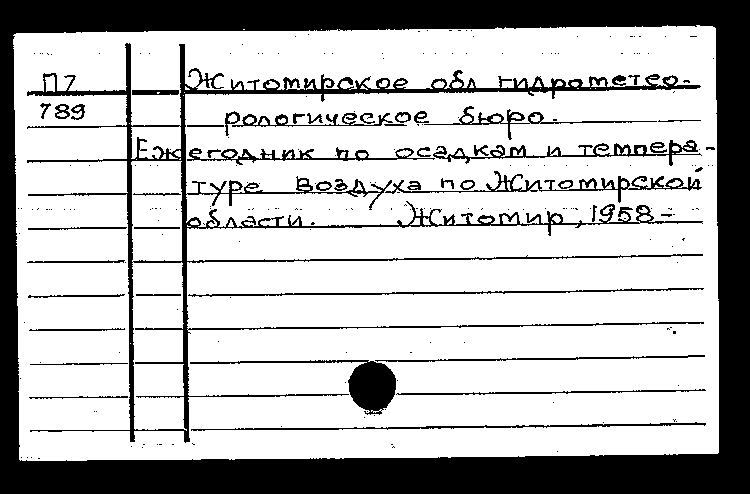 П7 Житомирское обл гидрометео-
789 рологическое бюро.
Ежегодник по осадкам и темпера-
туре воздуха по Житомирской
области. Житомир, 1958-